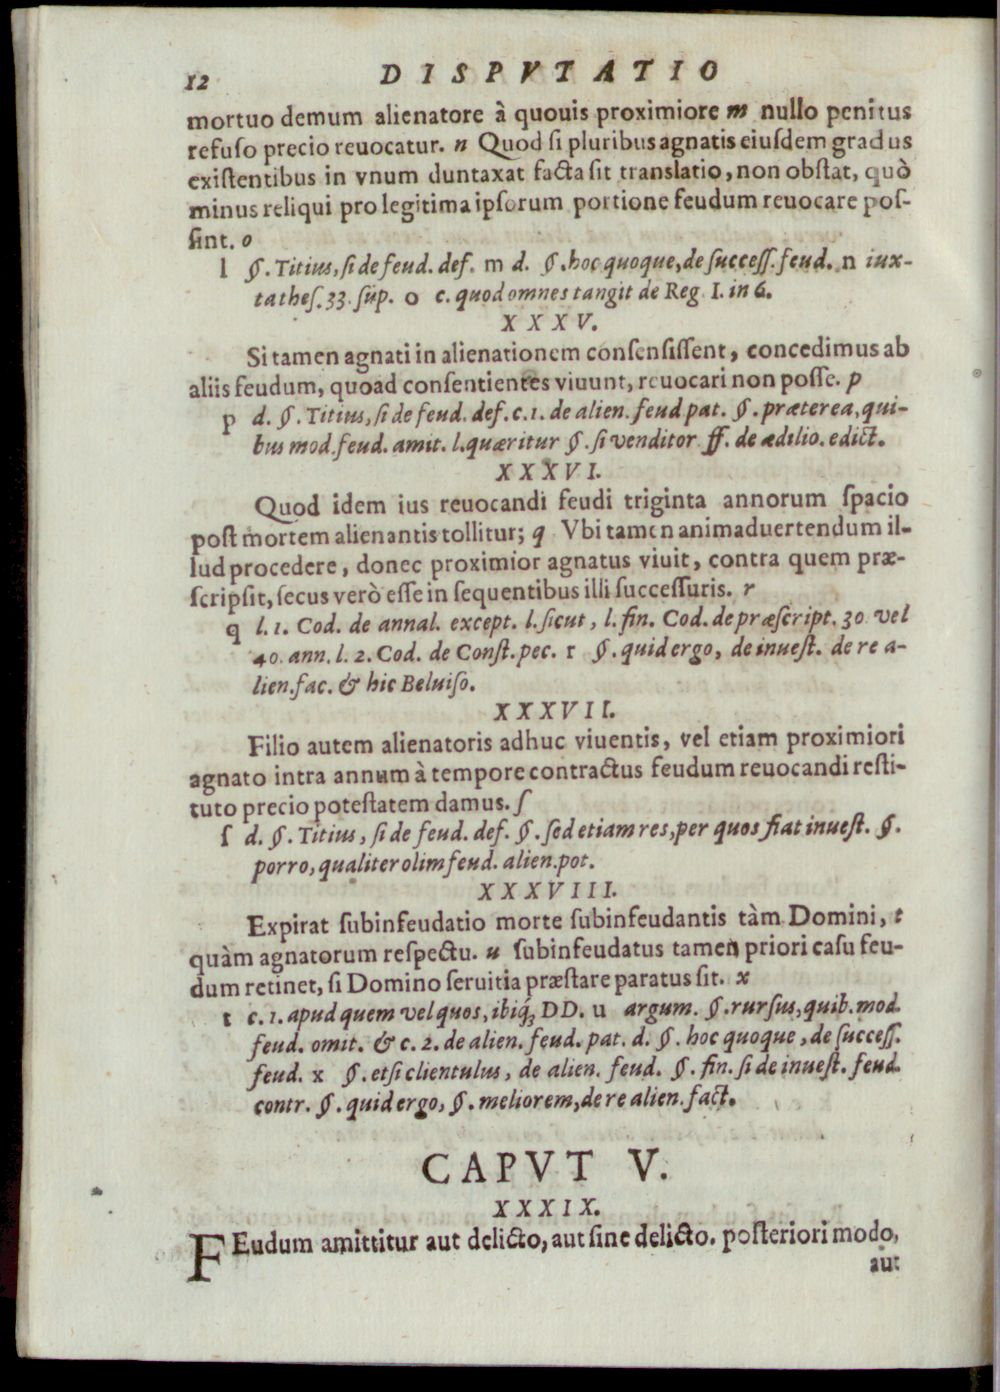 12 DISPVTATIO
mortuo demum alienatore à quouis proximiore m nullo penitus
refuſo precio reuocatur. n Quod ſi pluribus agnatis eiuſdem gradus
exiſtentibus in vnum duntaxat facta ſit translatio, non obſtat, quò
minus reliqui pro legitima ipſorum portione feudum reuocare poſ-
ſint. o
l §. Titius, ſi de feud. def. m d. §. hoc quoque, de ſucceſſ. feud. n iux-
ta theſ. 33. ſup. o c. quod omnes tangit de Reg. I. in 6.
XXXV.
Si tamen agnati in alienationem conſenſiſſent, concedimus ab
aliis feudum, quoad conſentientes viuunt, reuocari non poſſe. p
p d. §. Titius, ſi de feud. def. c. 1. de alien. feud pat. §. præterea, qui-
bus mod. feud. amit. l. quæritur §. ſi venditor ff. de ædilio. edict.
XXXVI.
Quod idem ius reuocandi feudi triginta annorum ſpacio
poſt mortem alienantis tollitur; q Vbi tamen animaduertendum il-
lud procedere, donec proximior agnatus viuit, contra quem præ-
ſcripſit, ſecus verò eſſe in ſequentibus illi ſucceſſuris. r
q l. 1. Cod. de annal. except. l. ſicut, l. fin. Cod. de præſcript. 30 vel
40. ann. l. 2. Cod. de Conſt. pec. r §. quid ergo, de inueſt. de re a-
lien. fac. & hic Beluiſo.
XXXVII.
Filio autem alienatoris adhuc viuentis, vel etiam proximiori
agnato intra annum à tempore contractus feudum reuocandi reſti-
tuto precio poteſtatem damus. ſ
ſ d. §. Titius, ſi de feud. def. §. ſed etiam res, per quos fiat inueſt. §.
porro, qualiter olim feud. alien. pot.
XXXVIII.
Expirat ſubinfeudatio morte ſubinfeudantis tàm Domini, t
quàm agnatorum reſpectu. u ſubinfeudatus tamen priori caſu feu-
dum retinet, ſi Domino ſeruitia præſtare paratus ſit. x
t c. 1. apud quem vel quos, ibiq́ꝫ DD. u argum. §. rurſus, quib. mod.
feud. omit. & c. 2. de alien. feud. pat. d. §. hoc quoque, de ſucceſſ.
feud. x §. etſi clientulus, de alien. feud. §. fin. ſi de inueſt. feud.
contr. §. quid ergo, §. meliorem, de re alien. fact.
CAPVT V.
XXXIX.
FEudum amittitur aut delicto, aut ſine delicto. poſteriori modo,
aut